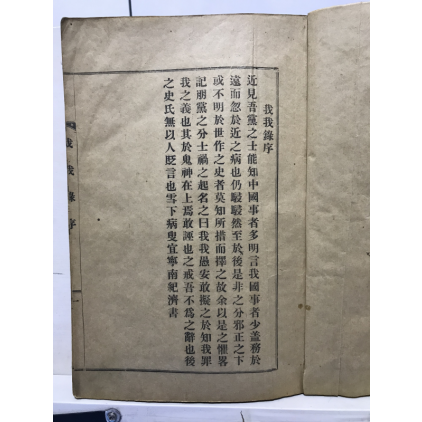 我我錄序
近見吾黨之士能知中國事者多明言我國事者少蓋務於
遠而忽於近之病也仍駸駸然至於後是非之分邪正之下
或不明於世作之史者莫知所措而擇之故余以是之懼畧
記朋黨之分士禍之起名之曰我我愚安敢擬之於知我罪
我之義也其於鬼神在上焉敢誣也之戒吾不爲之辭也後
之史氏無以人貶言也雪下病叟宜寧南紀濟書
我我錄序